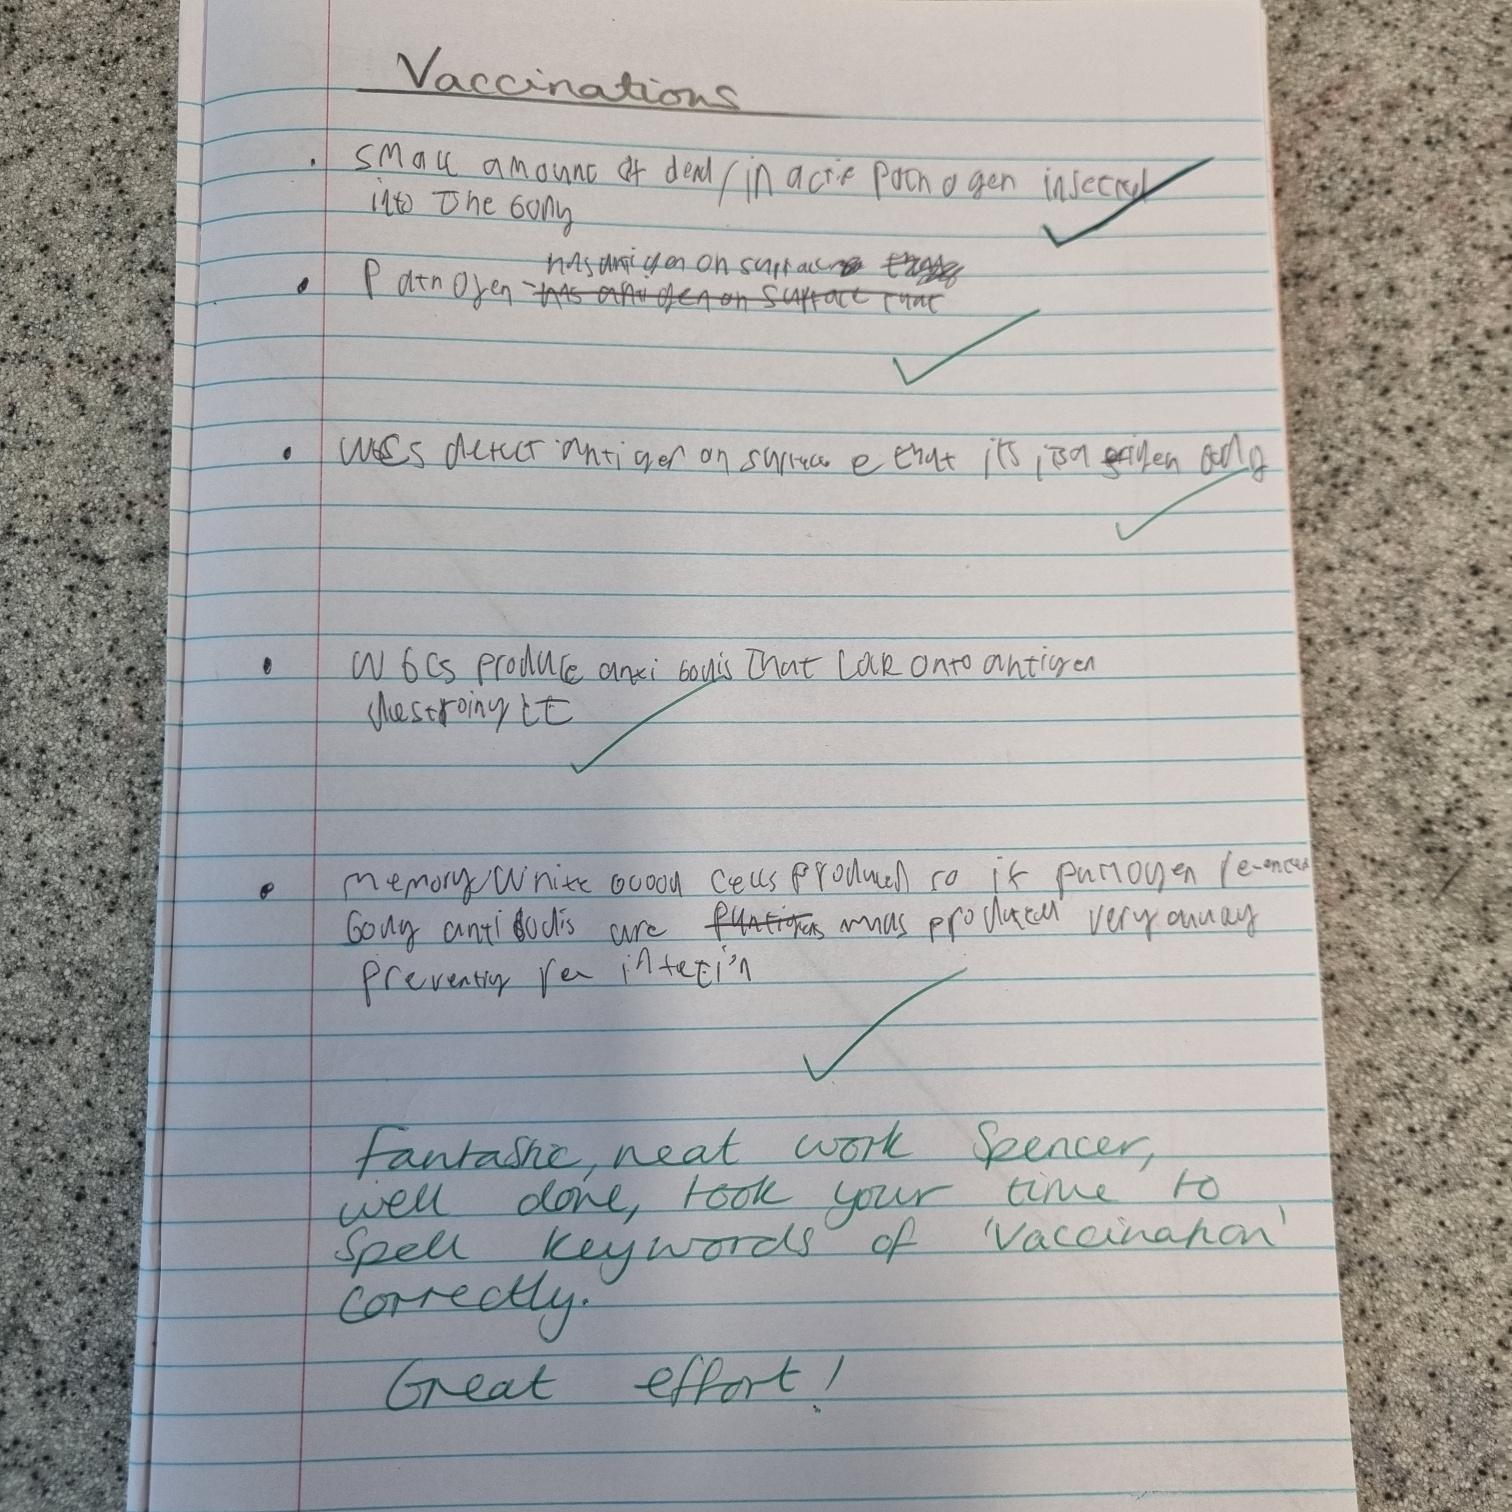 Vaccinations
. small amount of dead/in active pathogen injected
into the body
has antigen on surface
. Pathogen has antigen on surface that
. WBCs detect antigen on surface e that its
. W BCs produce anti bodis that lock onto antigen
destroiny it
. memory white blood cells produced so if pathogen re-enters
body anti bodis are produced very
preventing infection
Fantastic, neat work Spencer,
well done, took your time to
spell keywords of 'Vaccination'
correctly.
Great effort!